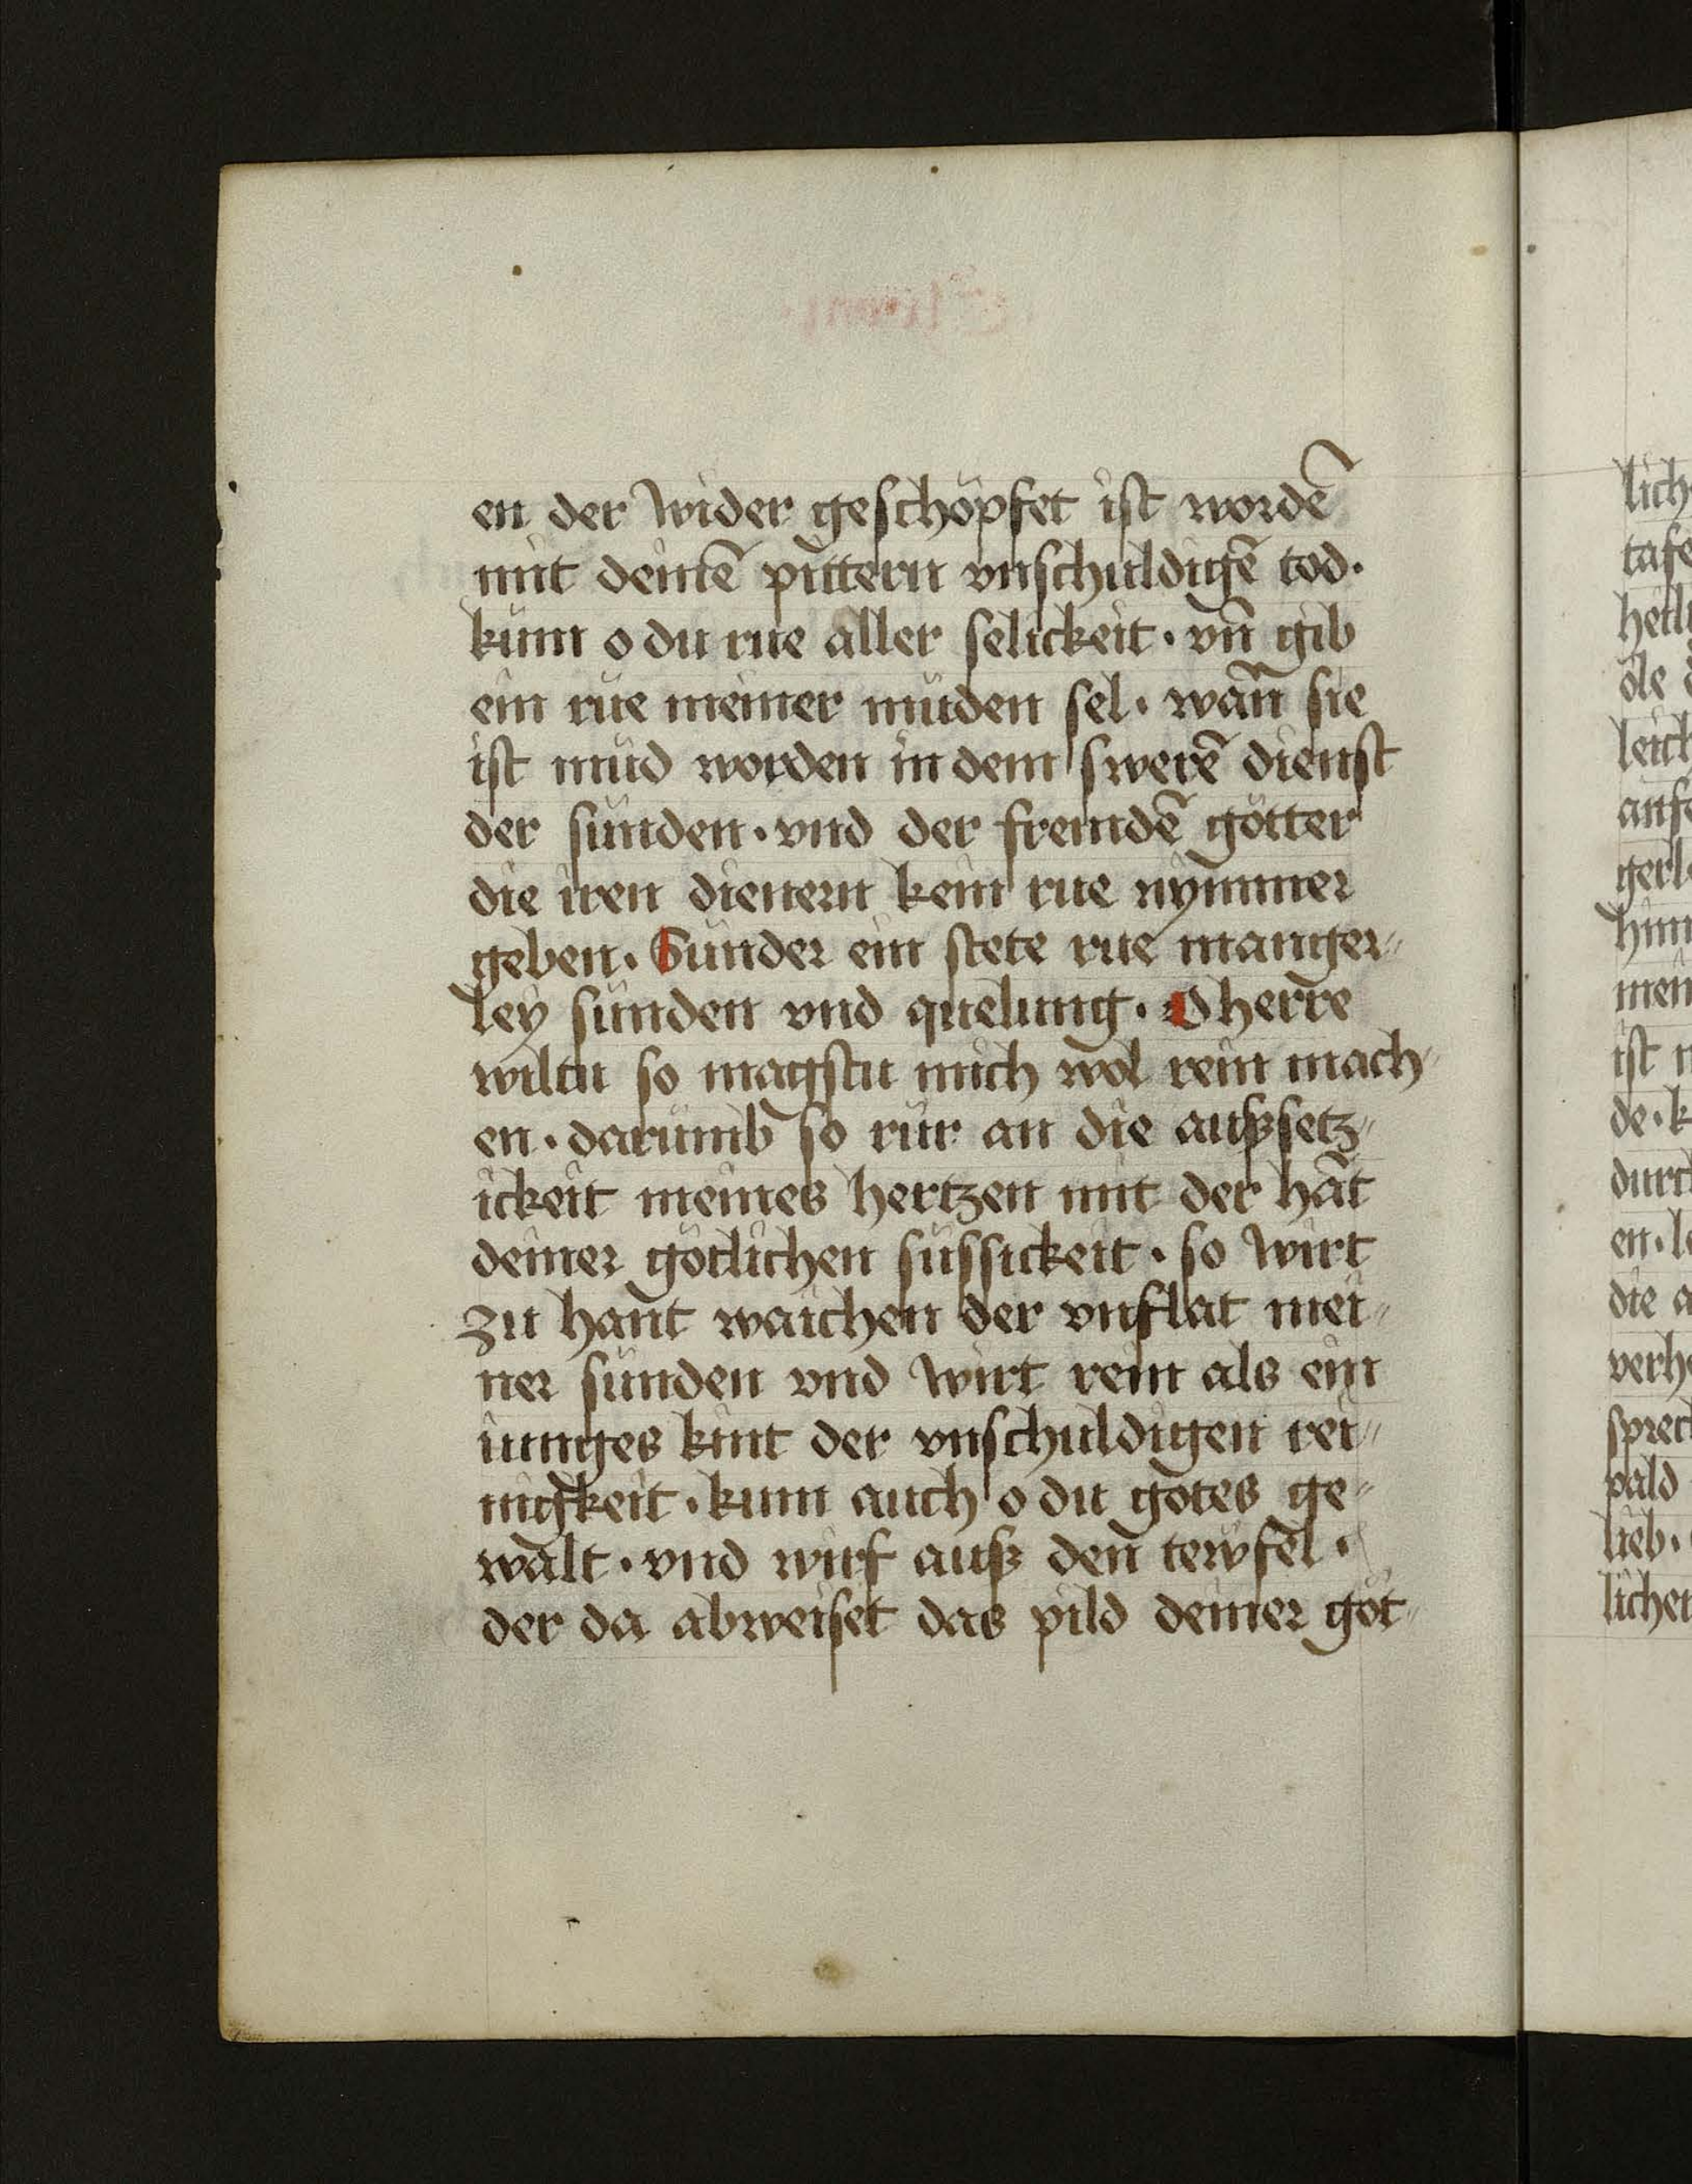 en der wider geschöpfet ist wordē
mit deinē pittern vnschuldigē tod·
kum o du rue aller selickeit· vn̄ gib
ein rue meiner müden sel· wan̄ sie
ist müd worden in dem swerē dienst
der sünden· vnd der fremdē götter
die iren dienern kein rue nymmer
geben· Sunder ein stete rue manger⸗
ley sünden vnd quelung· O herre
wiltu so magstu mich wol rein mach⸗
en· darumb so rür an die außsetz⸗
ickeit meines hertzen mit der hāt
deiner götlichen süssickeit· so wirt
zu hant waichen der vnflat mei⸗
ner sünden vnd wirt rein als ein
iunges kint der vnschuldigen rei⸗
nigkeit· kum auch o du gotes ge⸗
walt· vnd wirf auß den tewfel·
der da abweiset das pild deiner göt⸗